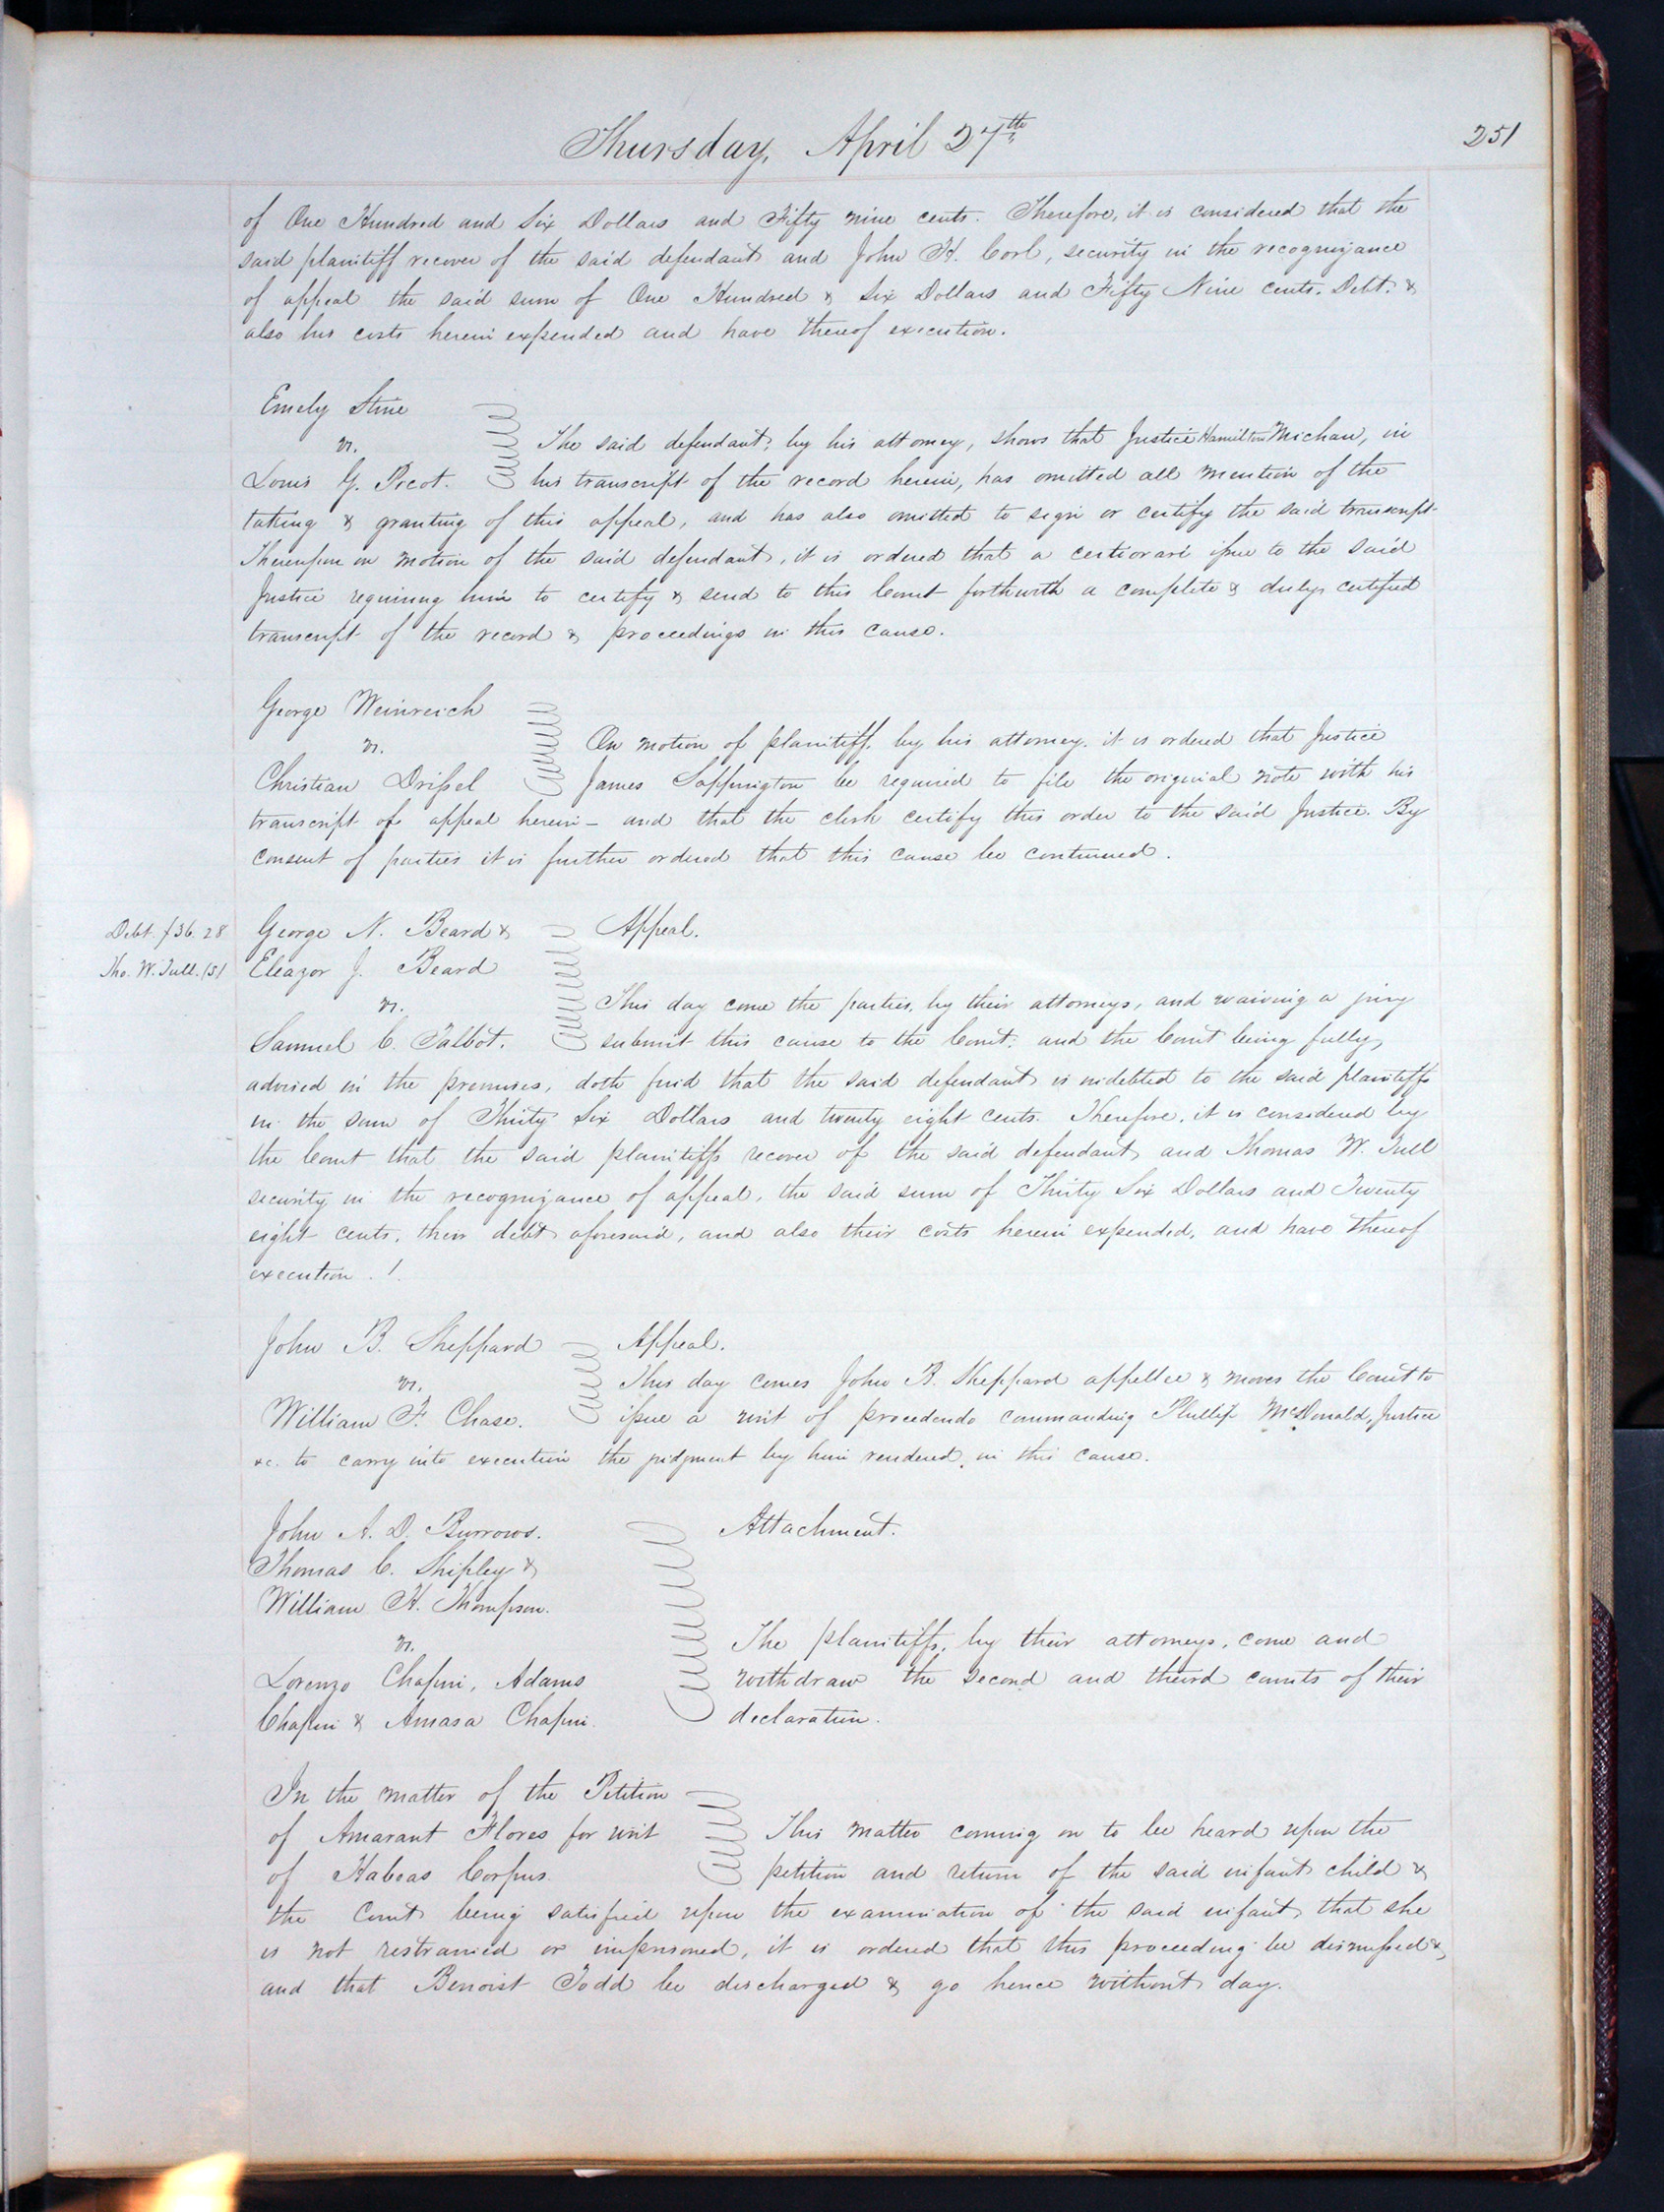 Thursday, April 27th
251
of One Hundred and Six Dollars and Fifty nine cents. Therefore, it is considered that the
said plaintiff recover of the said defendant and John H. Corl, security in the recognizance
of appeal the said sum of One Hundred & Six Dollars and Fifty Nine cents. Debt. &
also his costs herein expended and have thereof execution.
Emely Stine
vs.
Louis G. Picot.
The said defendant, by his attorney, shows that Justice Hamilton Michau, in
his transcript of the record herein, has omitted all mention of the
taking & granting of this appeal, and has also omitted to sign or certify the said transcript
Thereupon on motion of the said defendant, it is ordered that a certiorari issue to the said
Justice requiring him to certify & send to this Court forthwith a complete & duly certified
transcript of the record & proceedings in this cause.
George Weinreich
vs.
Christian Drissel
On motion of plaintiff, by his attorney, it is ordered that Justice
James Sappington be required to file the original note with his
transcript of appeal herein – and that the clerk certify this order to the said Justice. By
consent of parties it is further ordered that this cause be continued.
Debt. $36.28
Tho. W. Tull. (S)
George N. Beard &
Eleazor J. Beard
vs.
Samuel C. Talbot.
Appeal.
This day come the parties, by their attorneys, and waiving a jury
submit this cause to the Court; and the Court being fully
advised in the premises, doth find that the said defendant is indebted to the said plaintiffs
in the sum of Thirty Six Dollars and twenty eight cents. Therefore, it is considered by
the Court that the said plaintiffs recover of the said defendant and Thomas W. Tull
security in the recognizance of appeal, the said sum of Thirty Six Dollars and Twenty
eight cents, their debt aforesaid, and also their costs herein expended, and have thereof
execution.
John B. Sheppard
vs.
William F. Chase.
Appeal.
This day comes John B. Sheppard appellee & moves the Court to
issue a writ of procedendo commanding Phillip McDonald, Justice
&c. to carry into execution the judgment by him rendered, in this cause.
John A. D. Burrows.
Thomas C. Shipley &
William H. Thompson.
vs.
Lorenzo Chapin, Adams
Chapin & Amasa Chapin.
Attachment.
The plaintiffs, by their attorneys, come and
withdraw the second and theird counts of their
declaration.
In the matter of the Petition
of Amarant Flores for writ
of Habeas Corpus.
This matter coming on to be heard upon the
petition and return of the said infant child &
the Court being satisfied upon the examination of the said infant that she
is not restrained or imprisoned, it is ordered that this proceeding be dismissed &
and that Benoist Todd be discharged & go hence without day.